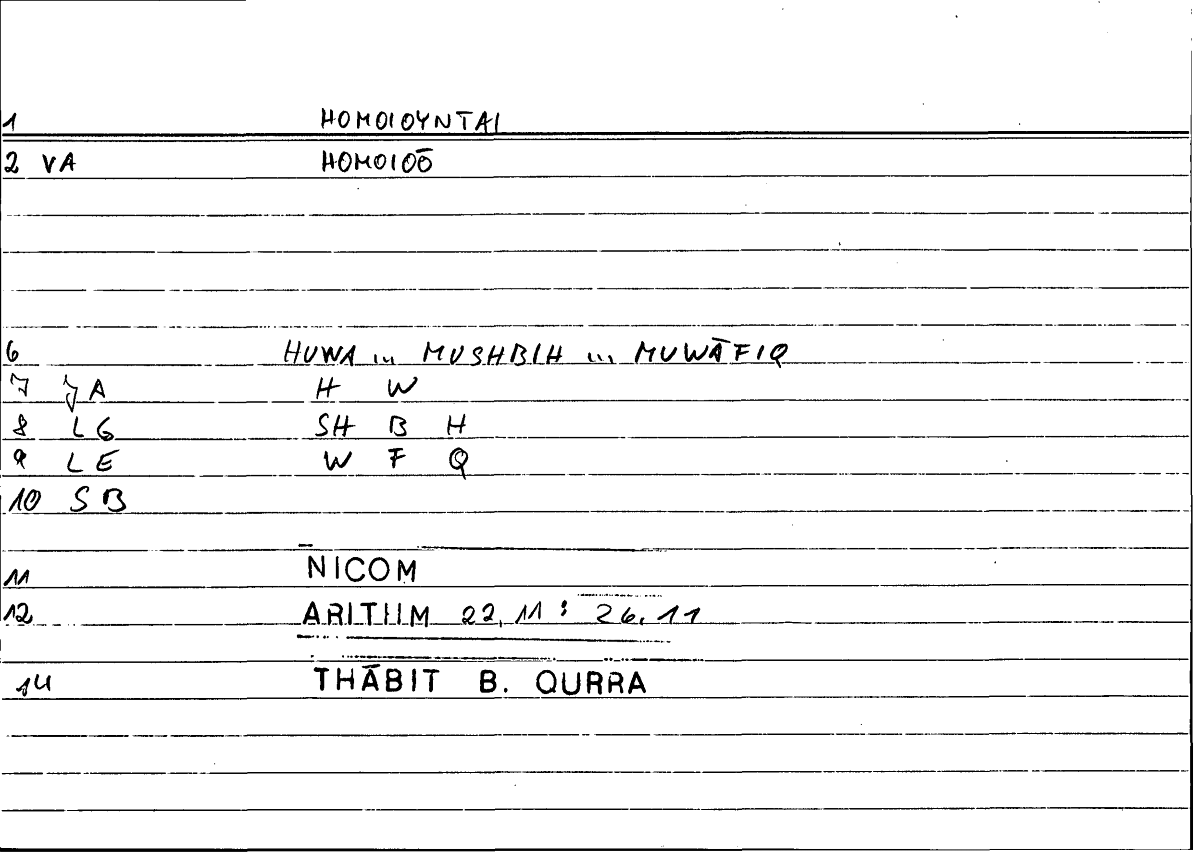 1 HOMOIOYNTAI
2 VA HOMOIOŌ
6 HUWA ... MUSHBIH ... MUWĀFIQ
7 JA H W
8 LG SH B H
9 LE W F Q
10 SB
11 NICOM
12 ARITHM 22,11 : 26,11
14 THĀBIT B. QURRA